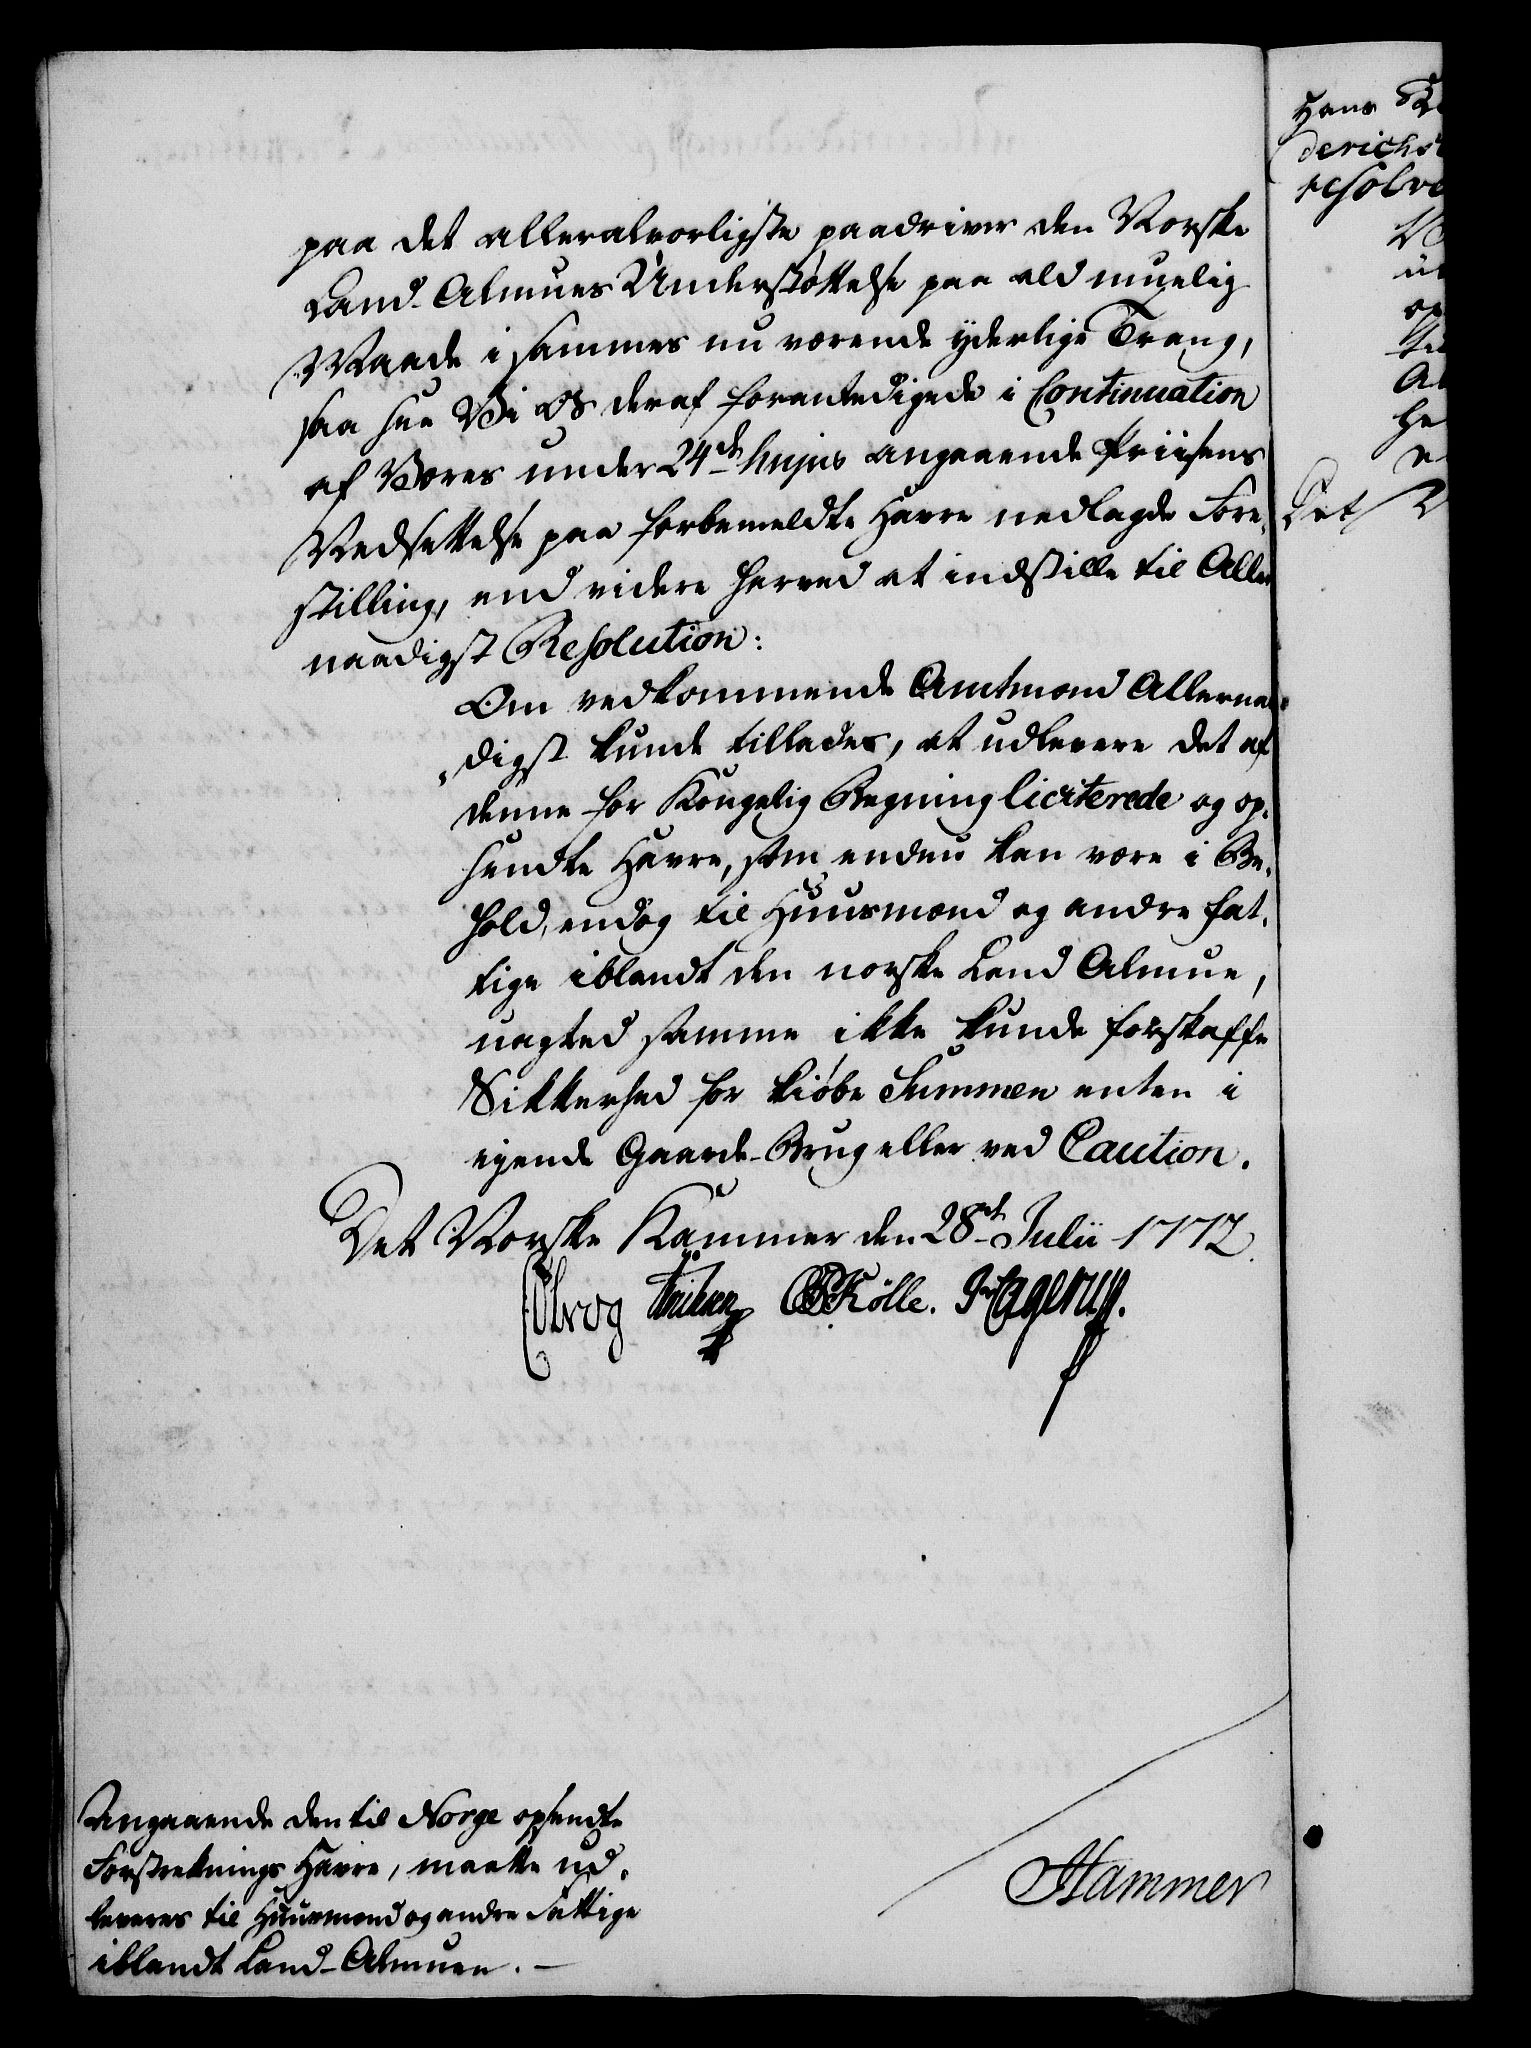 paa det alleralvorligste paadriver den Norske
Land-Almues Understøttelse paa ald muelig
Maade i sammes nu værende yderlige Trang,
saa see Vi Os deraf foranledigede i Continuation
af Vores under 24de hujus angaaende Priisens
Nedsettelse paa forbemeldte Havre nedlagde Fore-
stilling, end videre herved at indstille til Aller
naadigst Resolution:
Om vedkommende Amtmænd Allernaa-
digst kunde tillades, at udlevere det af
denne for Kongelig Regning liciterede og op-
sendte Havre, som endnu kan være i Be-
hold, endog til Huusmænd og andre fat-
tige iblandt den norske Land Almue,
uagted samme ikke kunde forskaffe
Sikkerhed for kiøbe Summen enten i
ejende Gaarde-Brug eller ved Caution.
Det Norske Kammer den 28de Julii 1772.
Kølle. Hagerup.
Angaaende den til Norge opsendte
Forstreknings Havre, maatte ud-
leveres til Huusmænd og andre Fattige
iblandt Land-Almuen. —
Hammer
Hans
derichs
resolve
Det